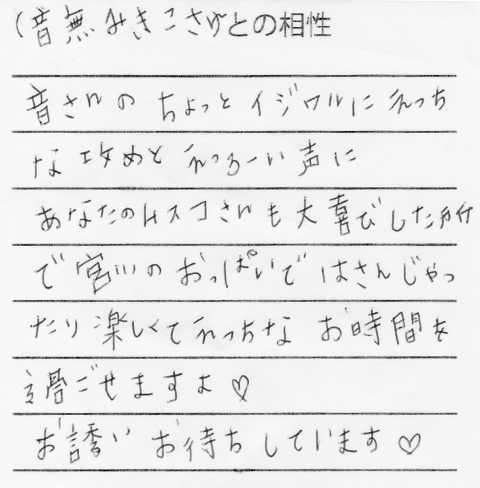 (音無みきこさん)との相性
音さんの ちょっとイジワルに えっち
な攻めと えっろーい声に
あなたのムスコさんも大喜びした所
で宮川のおっぱいで はさんじゃっ
たり楽しくてえっちな お時間を
過ごせますよ♡
お誘い お待ちしています♡